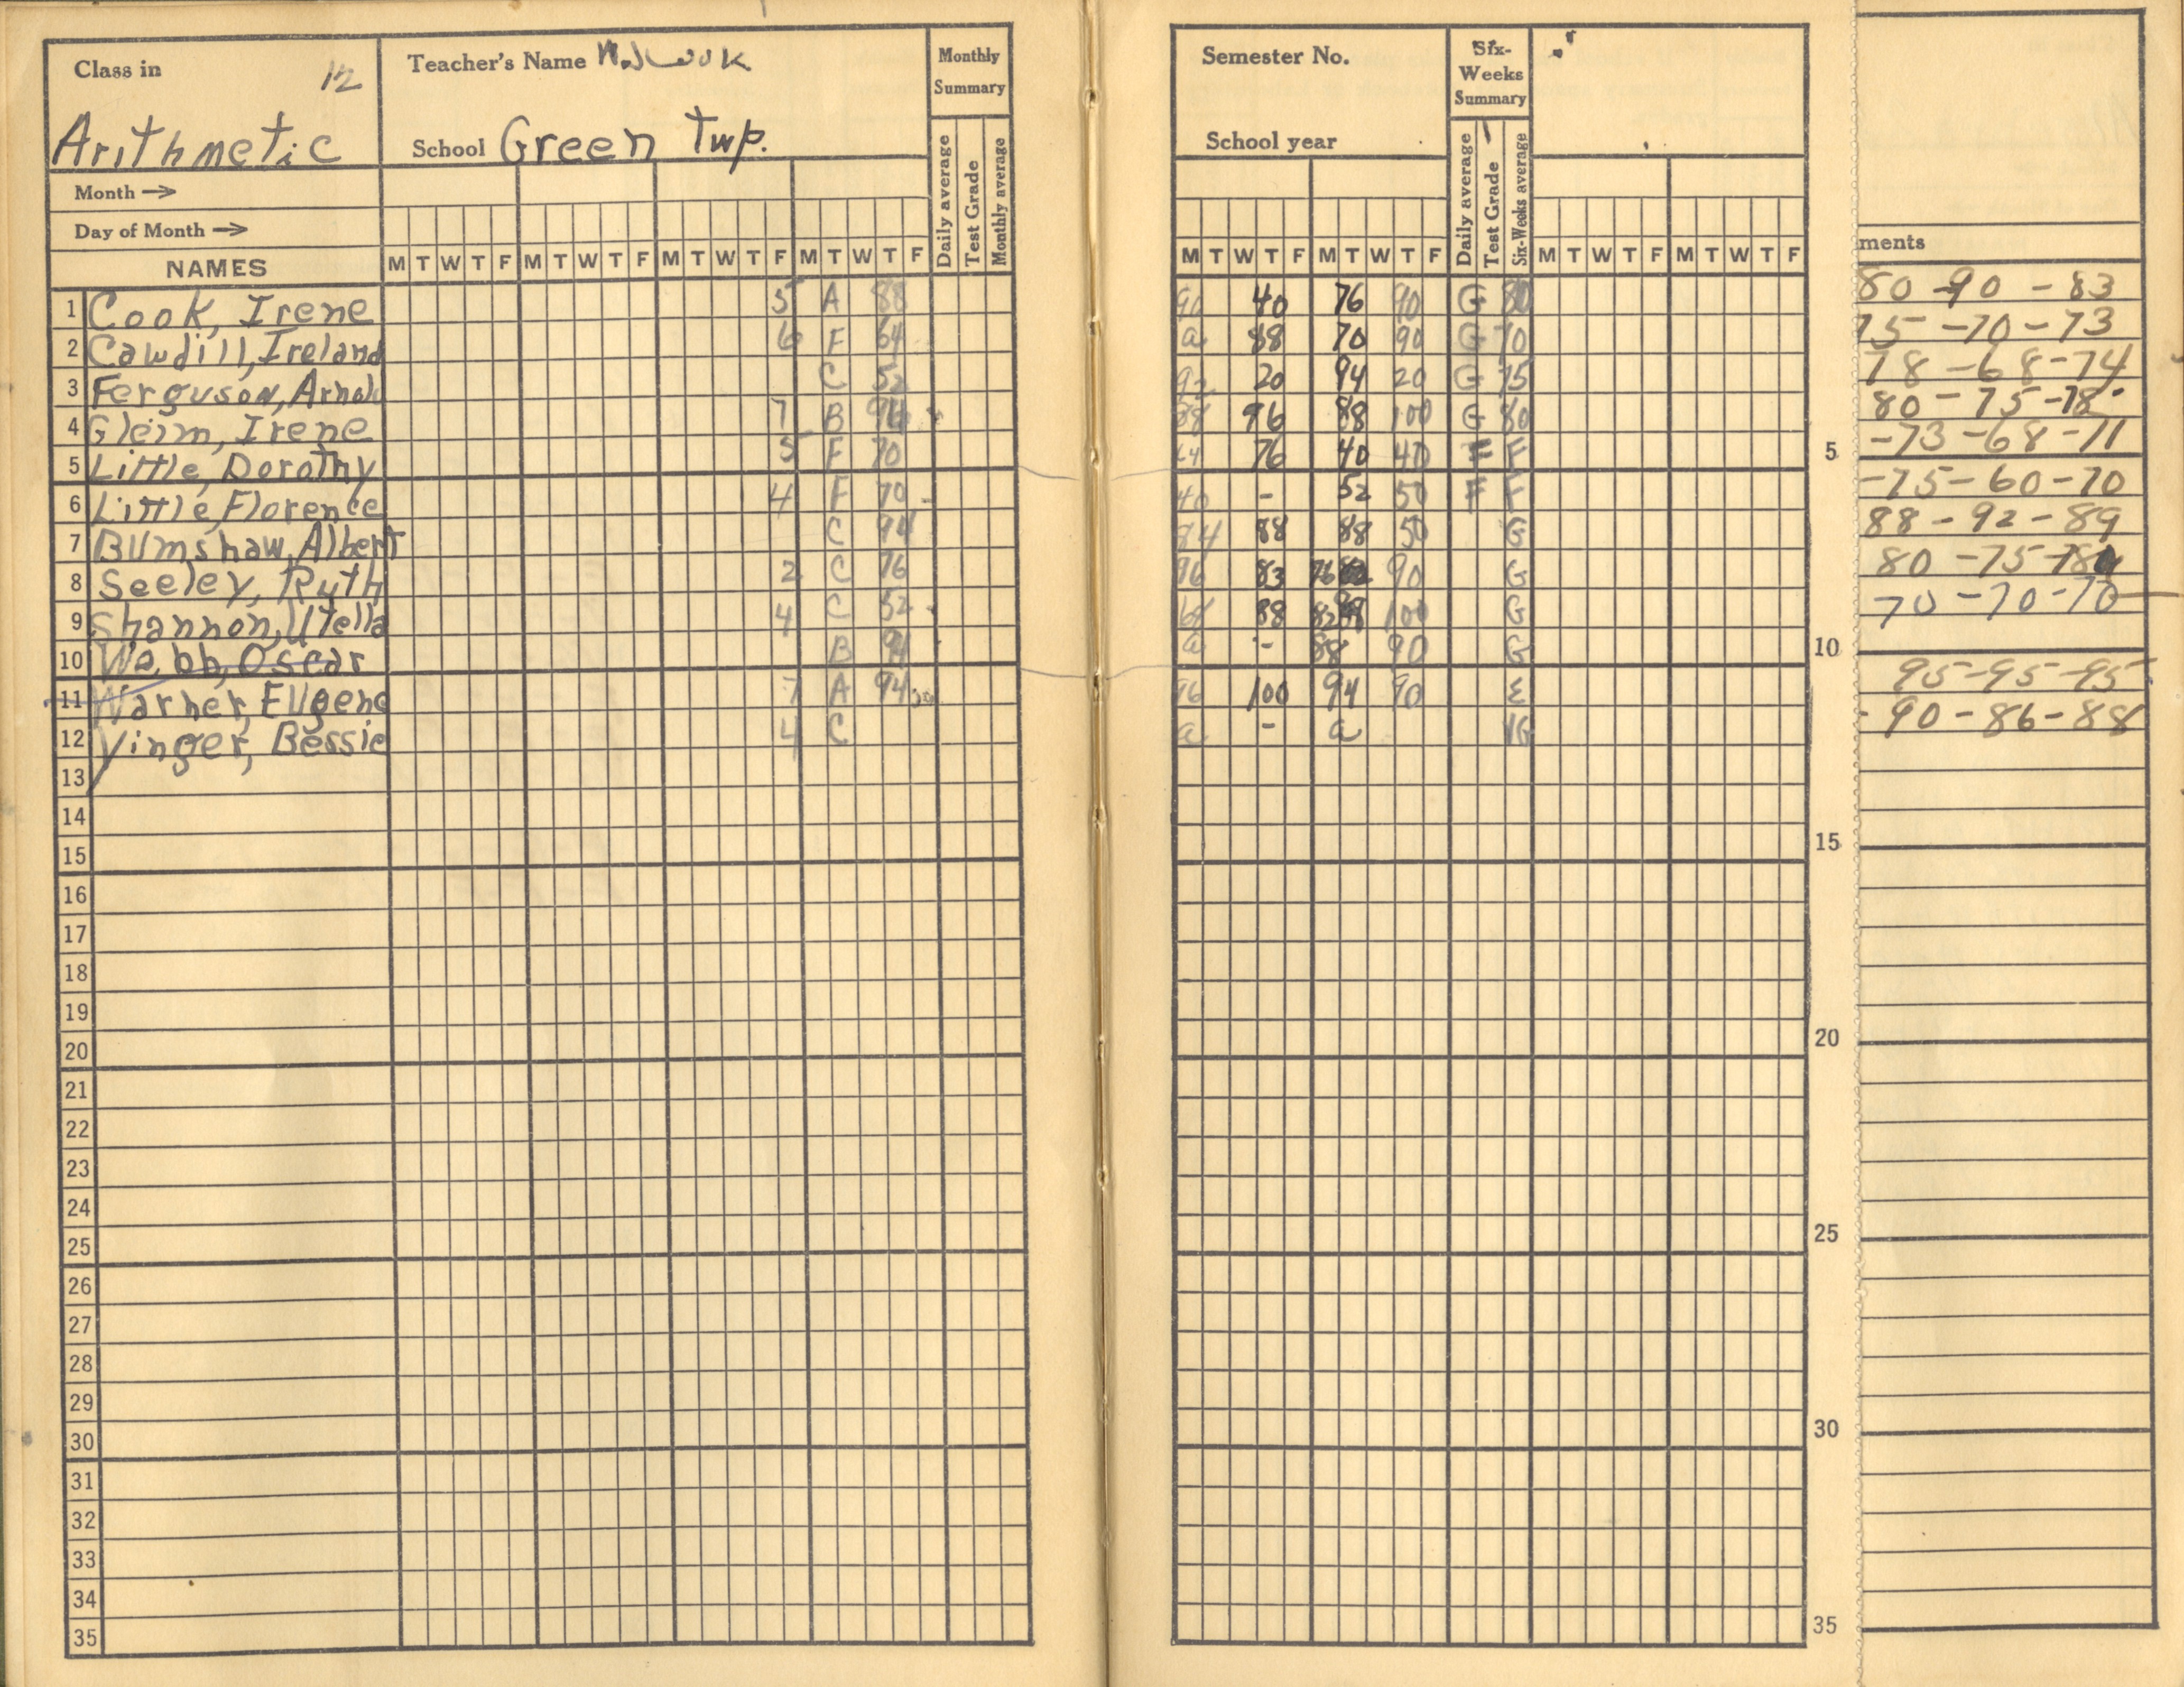 Class in 12
Arithmetic
Teacher's Name W. J. Cook
School Green Twp.
Monthly Summary
Daily average
Test Grade
Monthly average
Month →
Day of Month →
NAMES M T W T F M T W T F M T W T F M T W T F
1 Cook, Irene 5 A 88
2 Cawdill, Ireland 6 F 64
3 Ferguson, Arnold C 52
4 Gleim, Irene 7 B 96
5 Little, Dorothy 5 F 70
6 Little, Florence 4 F 70
7 Bumshaw, Albert C 94
8 Seeley, Ruth 2 C 76
9 Shannon, Utella 4 C 52
10 Webb, Oscar B 94
11 Warner, Eugene 7 A 94
12 Yinger, Bessie 4 C
13
14
15
16
17
18
19
20
21
22
23
24
25
26
27
28
29
30
31
32
33
34
35
Semester No.
School year
Six-Weeks Summary
Daily average
Test Grade
Six-Weeks average
M T W T F M T W T F M T W T F M T W T F
90 40 76 90 G 80
a 88 70 90 G 70
92 20 94 20 G 75
88 96 88 100 G 80
76 40 40 F F
40 - 52 50 F F
84 88 88 50 G
96 83 76 90 G
88 82 100 G
a - 88 90 G
96 100 94 90 E
a - a VG
5
10
15
20
25
30
35
ments
80 - 90 - 83
75 - 70 - 73
78 - 68 - 74
80 - 75 - 78
- 73 - 68 - 71
- 75 - 60 - 70
88 - 92 - 89
80 - 75 - 78
70 - 70 - 70
95 - 95 - 95
- 90 - 86 - 88